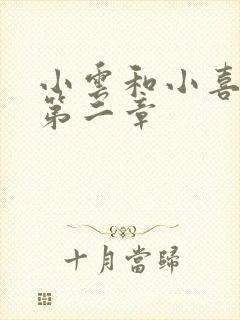 小雲和小喜
第二章
十月當歸